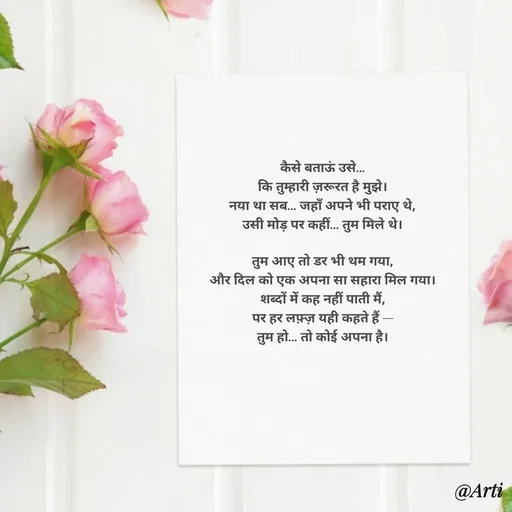 कैसे बताऊं उसे...
कि तुम्हारी ज़रूरत है मुझे।
नया था सब... जहाँ अपने भी पराए थे,
उसी मोड़ पर कहीं... तुम मिले थे।
तुम आए तो डर भी थम गया,
और दिल को एक अपना सा सहारा मिल गया।
शब्दों में कह नहीं पाती मैं,
पर हर लफ़्ज़ यही कहते हैं —
तुम हो... तो कोई अपना है।
@Arti